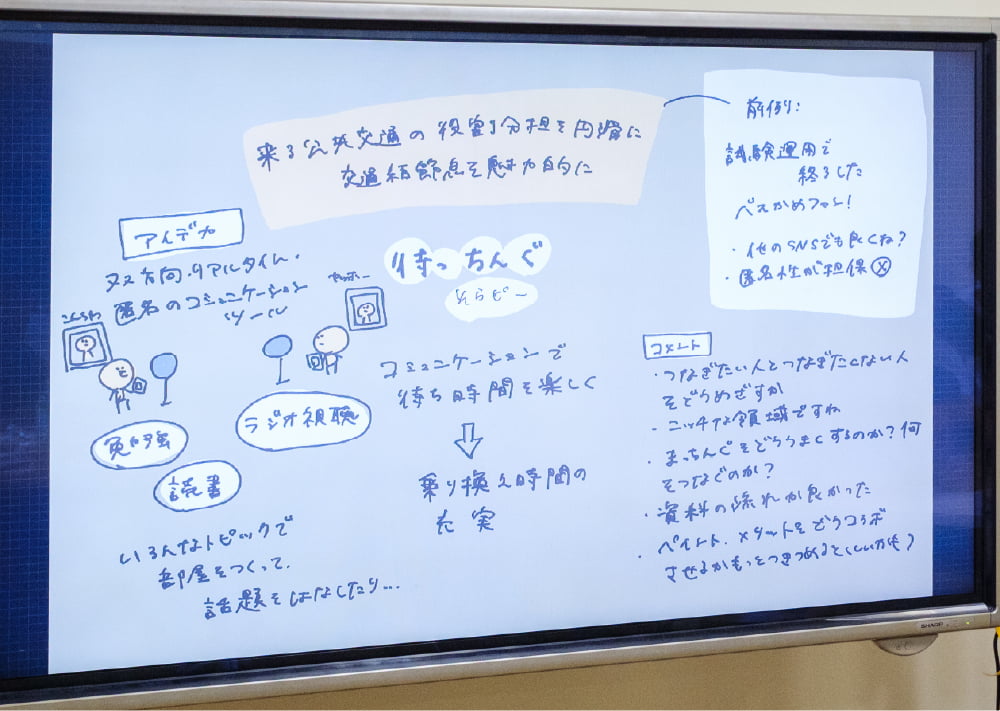 来る公共交通の役割分担を円滑に
交通結節点を魅力的に
前例:
試験運用で
終了した
ペスカめファン!
・他のSNSでも良くね?
・匿名性が担保 ×
アイデア
双方向・リアルタイム・
匿名のコミュニケーション
ツール
こんちわ
ヤッホー
勉強
読書
ラジオ視聴
いろんなトピックで
部屋をつくって、
話題をはなしたり…
待っちんぐ
そらピー
コミュニケーションで
待ち時間を楽しく
乗り換え時間の
充実
コメント
・つなぎたい人とつなぎたくない人
をどうめざすか
・ニッチな領域ですね
・まっちんぐをどううまくするのか?何
をつなぐのか?
・資料の流れが良かった
・ペイント、メタットをどうコラボ
させるかもっとつきつめるといいかも?
SHARP